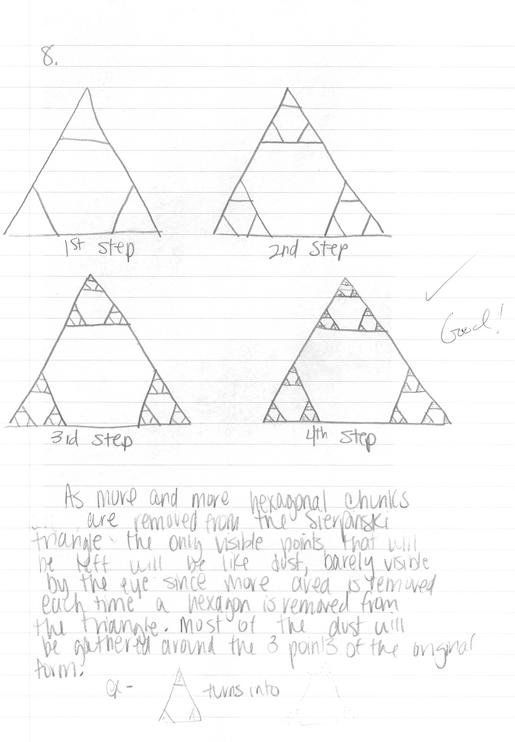 8.
1st Step
2nd Step
3rd Step
4th Step
Good!
As more and more hexagonal chunks
are removed from the Sierpanski
triangle the only visible points that will
be left will be like dust, barely visible
by the eye since more area is removed
each time a hexagon is removed from
the triangle. Most of the dust will
be gathered around the 3 points of the original
form.
ex- turns into